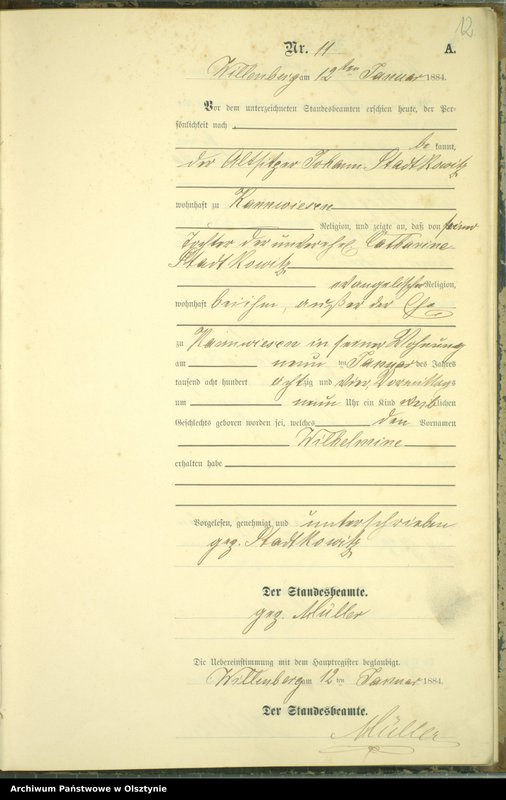 12.
Nr. 11 A.
Willenberg am 12ten Januar 1884.
Vor dem unterzeichneten Standesbeamten erschien heute, der Per-
sönlichkeit nach
be kannt,
der Altsitzer Johann Stadtkowitz
wohnhaft zu Kannwiesen
Religion, und zeigte an, daß von seiner
Tochter der unverehel. Catharine
Stadtkowitz
evangelischer Religion,
wohnhaft bei ihm, außer der Ehe
zu Kannwiesen in seiner Wohnung
am neun ten Januar des Jahres
tausend acht hundert achtzig und vier, Vormittags
um neun Uhr ein Kind weiblichen
Geschlechts geboren worden sei, welches den Vornamen
Wilhelmine
erhalten habe
Vorgelesen, genehmigt und unterschrieben
gez. Stadtkowitz
Der Standesbeamte.
gez. Müller
Die Uebereinstimmung mit dem Hauptregister beglaubigt.
Willenberg am 12 ten Januar 1884.
Der Standesbeamte.
Müller
Archiwum Państwowe w Olsztynie